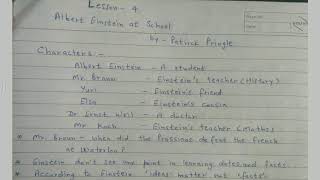 Lesson - 4
Albert Einstein at School
by - Patrick Pringle
Characters :-
Albert Einstein - A student
Mr. Braun - Einstein's teacher (History)
Yuri - Einstein's friend
Elsa - Einstein's cousin
Dr Ernst Weil - A doctor
Mr. Koch - Einstein's teacher (Maths)
* Mr. Braun - when did the Prussians defeat the French at Waterloo?
* Einstein don't see any point in learning dates and facts.
* According to Einstein 'ideas matter not 'facts'